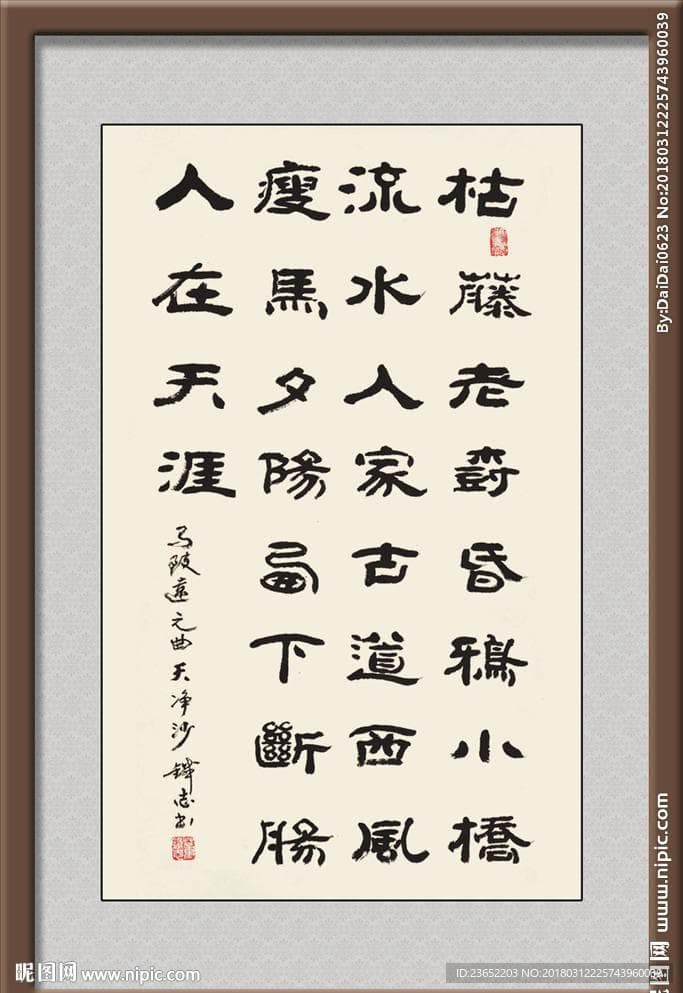 枯藤老樹昏鴉小橋
流水人家古道西風
瘦馬夕陽西下斷腸
人在天涯
马致遠元曲天净沙 鐸志书
By:DaiDai0623 No:20180312225743960039
昵图网 www.nipic.com
昵图网 www.nipic.com
ID:23652203 NO:20180312225743960039